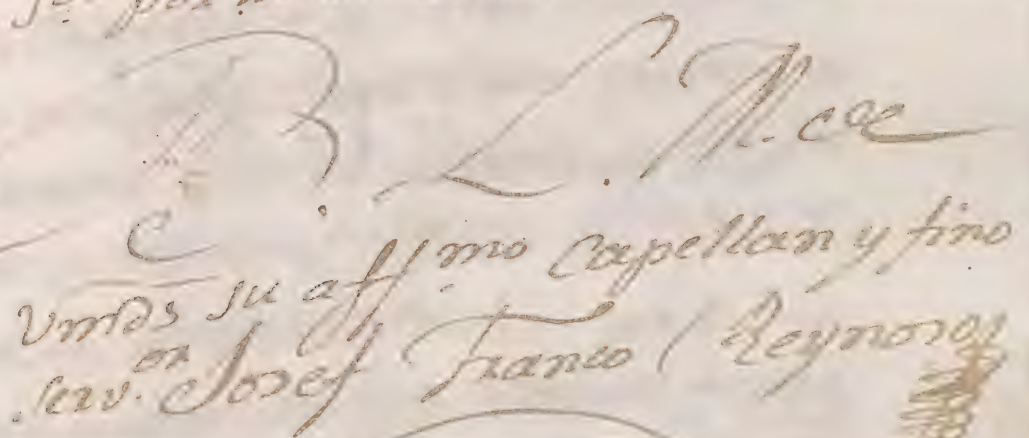 B. L. M. de
Vmds su aff.mo Capellan y fino
serv.or Josef Franco Reynoso